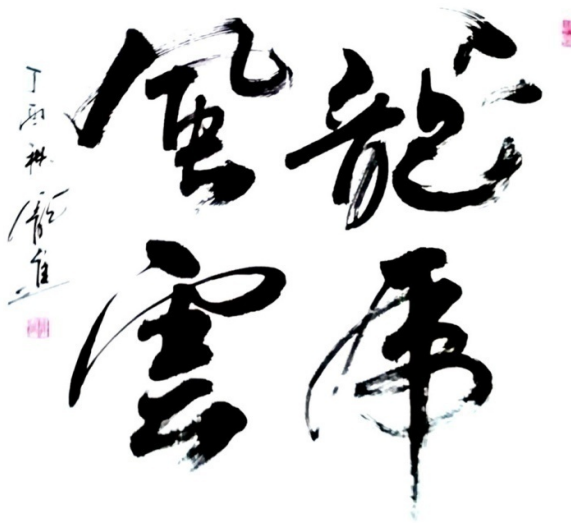 龍虎
風雲
丁酉秋